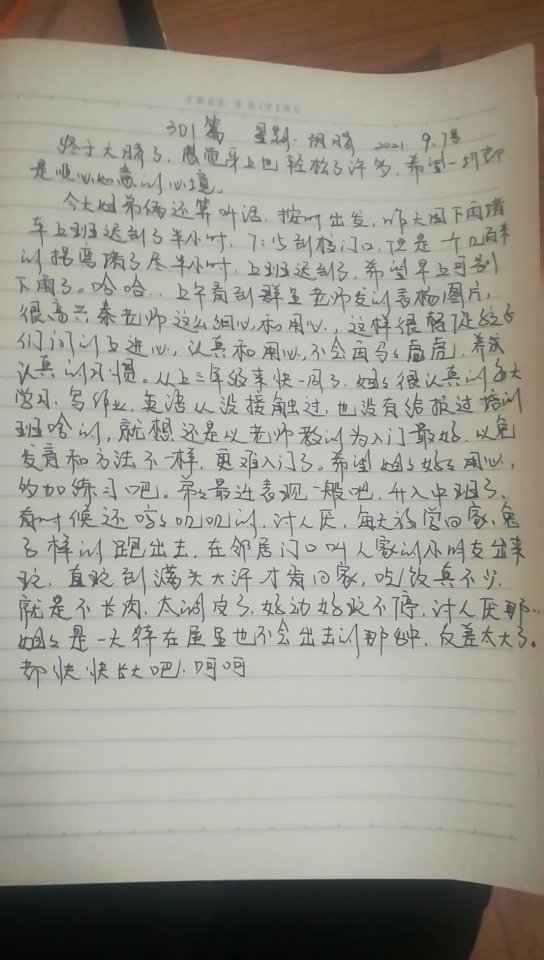 FREE WRITING
301篇 星期 晴 2021 9.7号
终于天晴了，感觉身上也轻松了许多，希望一切都
是顺心如意的心境。
今天姐弟俩还算听话，按时出发，昨天因下雨堵
车上班迟到了半小时，7:15到校门口，但是十几百米
的拐弯堵了尽半小时，上班迟到了，希望早上可别
下雨了。哈哈… 上午看到群里老师发的表杨图片，
很高兴秦老师这么细心和用心，这样很督促孩子
们的上进心，认真和用心，不会再马马虚虎，养成
认真的习惯。从上三年级来快一周了，姐姐很认真的每天
学习，写作业，英语从没接触过，也没有给报过培训
班啥的，就想还是以老师教的为入门最好，以免
发音和方法不一样，更难入门了。希望姐姐好好用心，
多加练习吧。弟弟最近表现一般吧，升入中班了，
有时候还哼哼叽叽的，讨人厌，每天放学回家，兔
子样的跑出去，在邻居门口叫人家的小朋友出来
玩，直玩到满头大汗才肯回家，吃饭真不少，
就是不长肉，太调皮了，好动好玩不停，讨人厌那…
姐姐是一天待在屋里也不会出去的那种，反差太大了。
都快快长大吧，呵呵